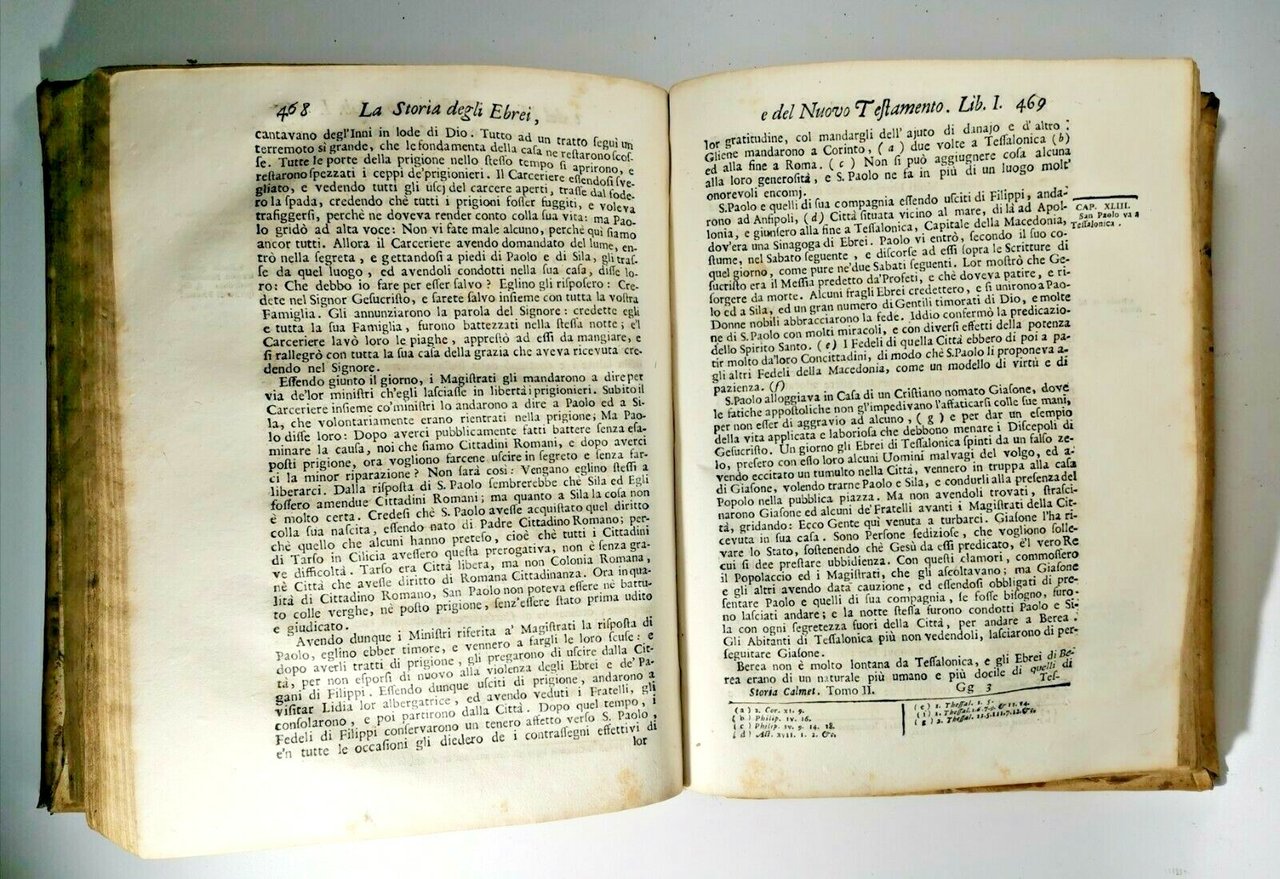 468 La Storia degli Ebrei,
cantavano degl'Inni in lode di Dio. Tutto ad un tratto seguì un
terremoto sì grande, che le fondamenta della casa ne restarono scos-
se. Tutte le porte della prigione nello stesso tempo si aprirono, e
restarono spezzati i ceppi de'prigionieri. Il Carceriere essendosi sve-
gliato, e vedendo tutti gli uscj del carcere aperti, trasse dal fode-
ro la spada, credendo chè tutti i prigioni fosser fuggiti, e voleva
trafiggersi, perchè ne doveva render conto colla sua vita: ma Pao-
lo gridò ad alta voce: Non vi fate male alcuno, perchè qui siamo
ancor tutti. Allora il Carceriere avendo domandato del lume, en-
trò nella segreta, e gettandosi a piedi di Paolo e di Sila, gli tras-
se da quel luogo, ed avendoli condotti nella sua casa, disse lo-
ro: Che debbo io fare per esser salvo? Eglino gli risposero: Cre-
dete nel Signor Gesucristo, e sarete salvo insieme con tutta la vostra
Famiglia. Gli annunziarono la parola del Signore: credette egli
e tutta la sua Famiglia, furono battezzati nella stessa notte; e'l
Carceriere lavò loro le piaghe, apprestò ad essi da mangiare, e
si rallegrò con tutta la sua casa della grazia che aveva ricevuta cre-
dendo nel Signore.
Essendo giunto il giorno, i Magistrati gli mandarono a dire per
via de'lor ministri ch'egli lasciasse in libertà i prigionieri. Subito il
Carceriere insieme co'ministri lo andarono a dire a Paolo ed a Si-
la, che volontariamente erano rientrati nella prigione; Ma Pao-
lo disse loro: Dopo averci pubblicamente fatti battere senza esa-
minare la causa, noi che siamo Cittadini Romani, e dopo averci
posti prigione, ora vogliono farcene uscire in segreto e senza far-
ci la minor riparazione? Non sarà così: Vengano eglino stessi a
liberarci. Dalla risposta di S. Paolo sembrerebbe chè Sila ed Egli
fossero amendue Cittadini Romani; ma quanto a Sila la cosa non
è molto certa. Credesi chè S. Paolo avesse acquistato quel diritto
colla sua nascita, essendo nato di Padre Cittadino Romano; per-
chè quello che alcuni hanno preteso, cioè chè tutti i Cittadini
di Tarso in Cilicia avessero questa prerogativa, non è senza gra-
ve difficoltà. Tarso era Città libera, ma non Colonia Romana,
nè Città che avesse diritto di Romana Cittadinanza. Ora in qua-
lità di Cittadino Romano, San Paolo non poteva essere nè battu-
to colle verghe, nè posto prigione, senz'essere stato prima udito
e giudicato.
Avendo dunque i Ministri riferita a' Magistrati la risposta di
Paolo, eglino ebber timore, e vennero a fargli le loro scuse: e
dopo averli tratti di prigione, gli pregarono di uscire dalla Cit-
tà, per non esporsi di nuovo alla violenza degli Ebrei e de' Pa-
gani di Filippi. Essendo dunque usciti di prigione, andarono a
visitar Lidia lor albergatrice, ed avendo veduti i Fratelli, gli
consolarono, e poi partirono dalla Città. Dopo quel tempo, i
Fedeli di Filippi conservarono un tenero affetto verso S. Paolo,
e'n tutte le occasioni gli diedero de i contrassegni effettivi di
lor
e del Nuovo Testamento. Lib. I. 469
lor gratitudine, col mandargli dell'ajuto di danajo e d'altro:
Gliene mandarono a Corinto, (a) due volte a Tessalonica (b)
ed alla fine a Roma. (c) Non si può aggiugnere cosa alcuna
alla loro generosità, e S. Paolo ne fa in più di un luogo molt'
onorevoli encomj.
S.Paolo e quelli di sua compagnia essendo usciti di Filippi, anda-
rono ad Anfipoli, (d) Città situata vicino al mare, di là ad Apol-
lonia, e giunsero alla fine a Tessalonica, Capitale della Macedonia,
dov'era una Sinagoga di Ebrei. Paolo vi entrò, secondo il suo co-
stume, nel Sabato seguente, e discorse ad essi sopra le Scritture di
quel giorno, come pure ne'due Sabati seguenti. Lor mostrò che Ge-
sucristo era il Messia predetto da'Profeti, e chè doveva patire, e ri-
sorgere da morte. Alcuni fragli Ebrei credettero, e si unirono a Pao-
lo ed a Sila, ed un gran numero di Gentili timorati di Dio, e molte
Donne nobili abbracciarono la fede. Iddio confermò la predicazio-
ne di S.Paolo con molti miracoli, e con diversi effetti della potenza
dello Spirito Santo. (e) I Fedeli di quella Città ebbero di poi a pa-
tir molto da'loro Concittadini, di modo chè S.Paolo li proponeva a-
gli altri Fedeli della Macedonia, come un modello di virtù e di
pazienza. (f)
S.Paolo alloggiava in Casa di un Cristiano nomato Giasone, dove
le fatiche appostoliche non gl'impedivano l'affaticarsi colle sue mani,
per non esser di aggravio ad alcuno, (g) e per dar un esempio
della vita applicata e laboriosa che debbono menare i Discepoli di
Gesucristo. Un giorno gli Ebrei di Tessalonica spinti da un falso ze-
lo, presero con esso loro alcuni Uomini malvagi del volgo, ed a-
vendo eccitato un tumulto nella Città, vennero in truppa alla casa
di Giasone, volendo trarne Paolo e Sila, e condurli alla presenza del
Popolo nella pubblica piazza. Ma non avendoli trovati, strasci-
narono Giasone ed alcuni de' Fratelli avanti i Magistrati della Cit-
tà, gridando: Ecco Gente qui venuta a turbarci. Giasone l'ha ri-
cevuta in sua casa. Sono Persone sediziose, che vogliono solle-
vare lo Stato, sostenendo chè Gesù da essi predicato, è'l vero Re
cui si dee prestare ubbidienza. Con questi clamori, commossero
il Popolaccio ed i Magistrati, che gli ascoltavano; ma Giasone
e gli altri avendo data cauzione, ed essendosi obbligati di pre-
sentare Paolo e quelli di sua compagnia, se fosse bisogno, furo-
no lasciati andare; e la notte stessa furono condotti Paolo e Si-
la con ogni segretezza fuori della Città, per andare a Berea.
Gli Abitanti di Tessalonica più non vedendoli, lasciarono di per-
seguitare Giasone.
Berea non è molto lontana da Tessalonica, e gli Ebrei di Be-
rea erano di un naturale più umano e più docile di quelli di
Storia Calmet. Tomo II. Gg 3 Tes-
CAP. XLIII.
San Paolo va a
Tessalonica.
(a) 2. Cor. XI. 9.
(b) Philip. IV. 16.
(c) Philip. IV. 9. 14. 18.
(d) Act. XVII. 1. 2. &c.
(e) 1. Thessal. I. 5.